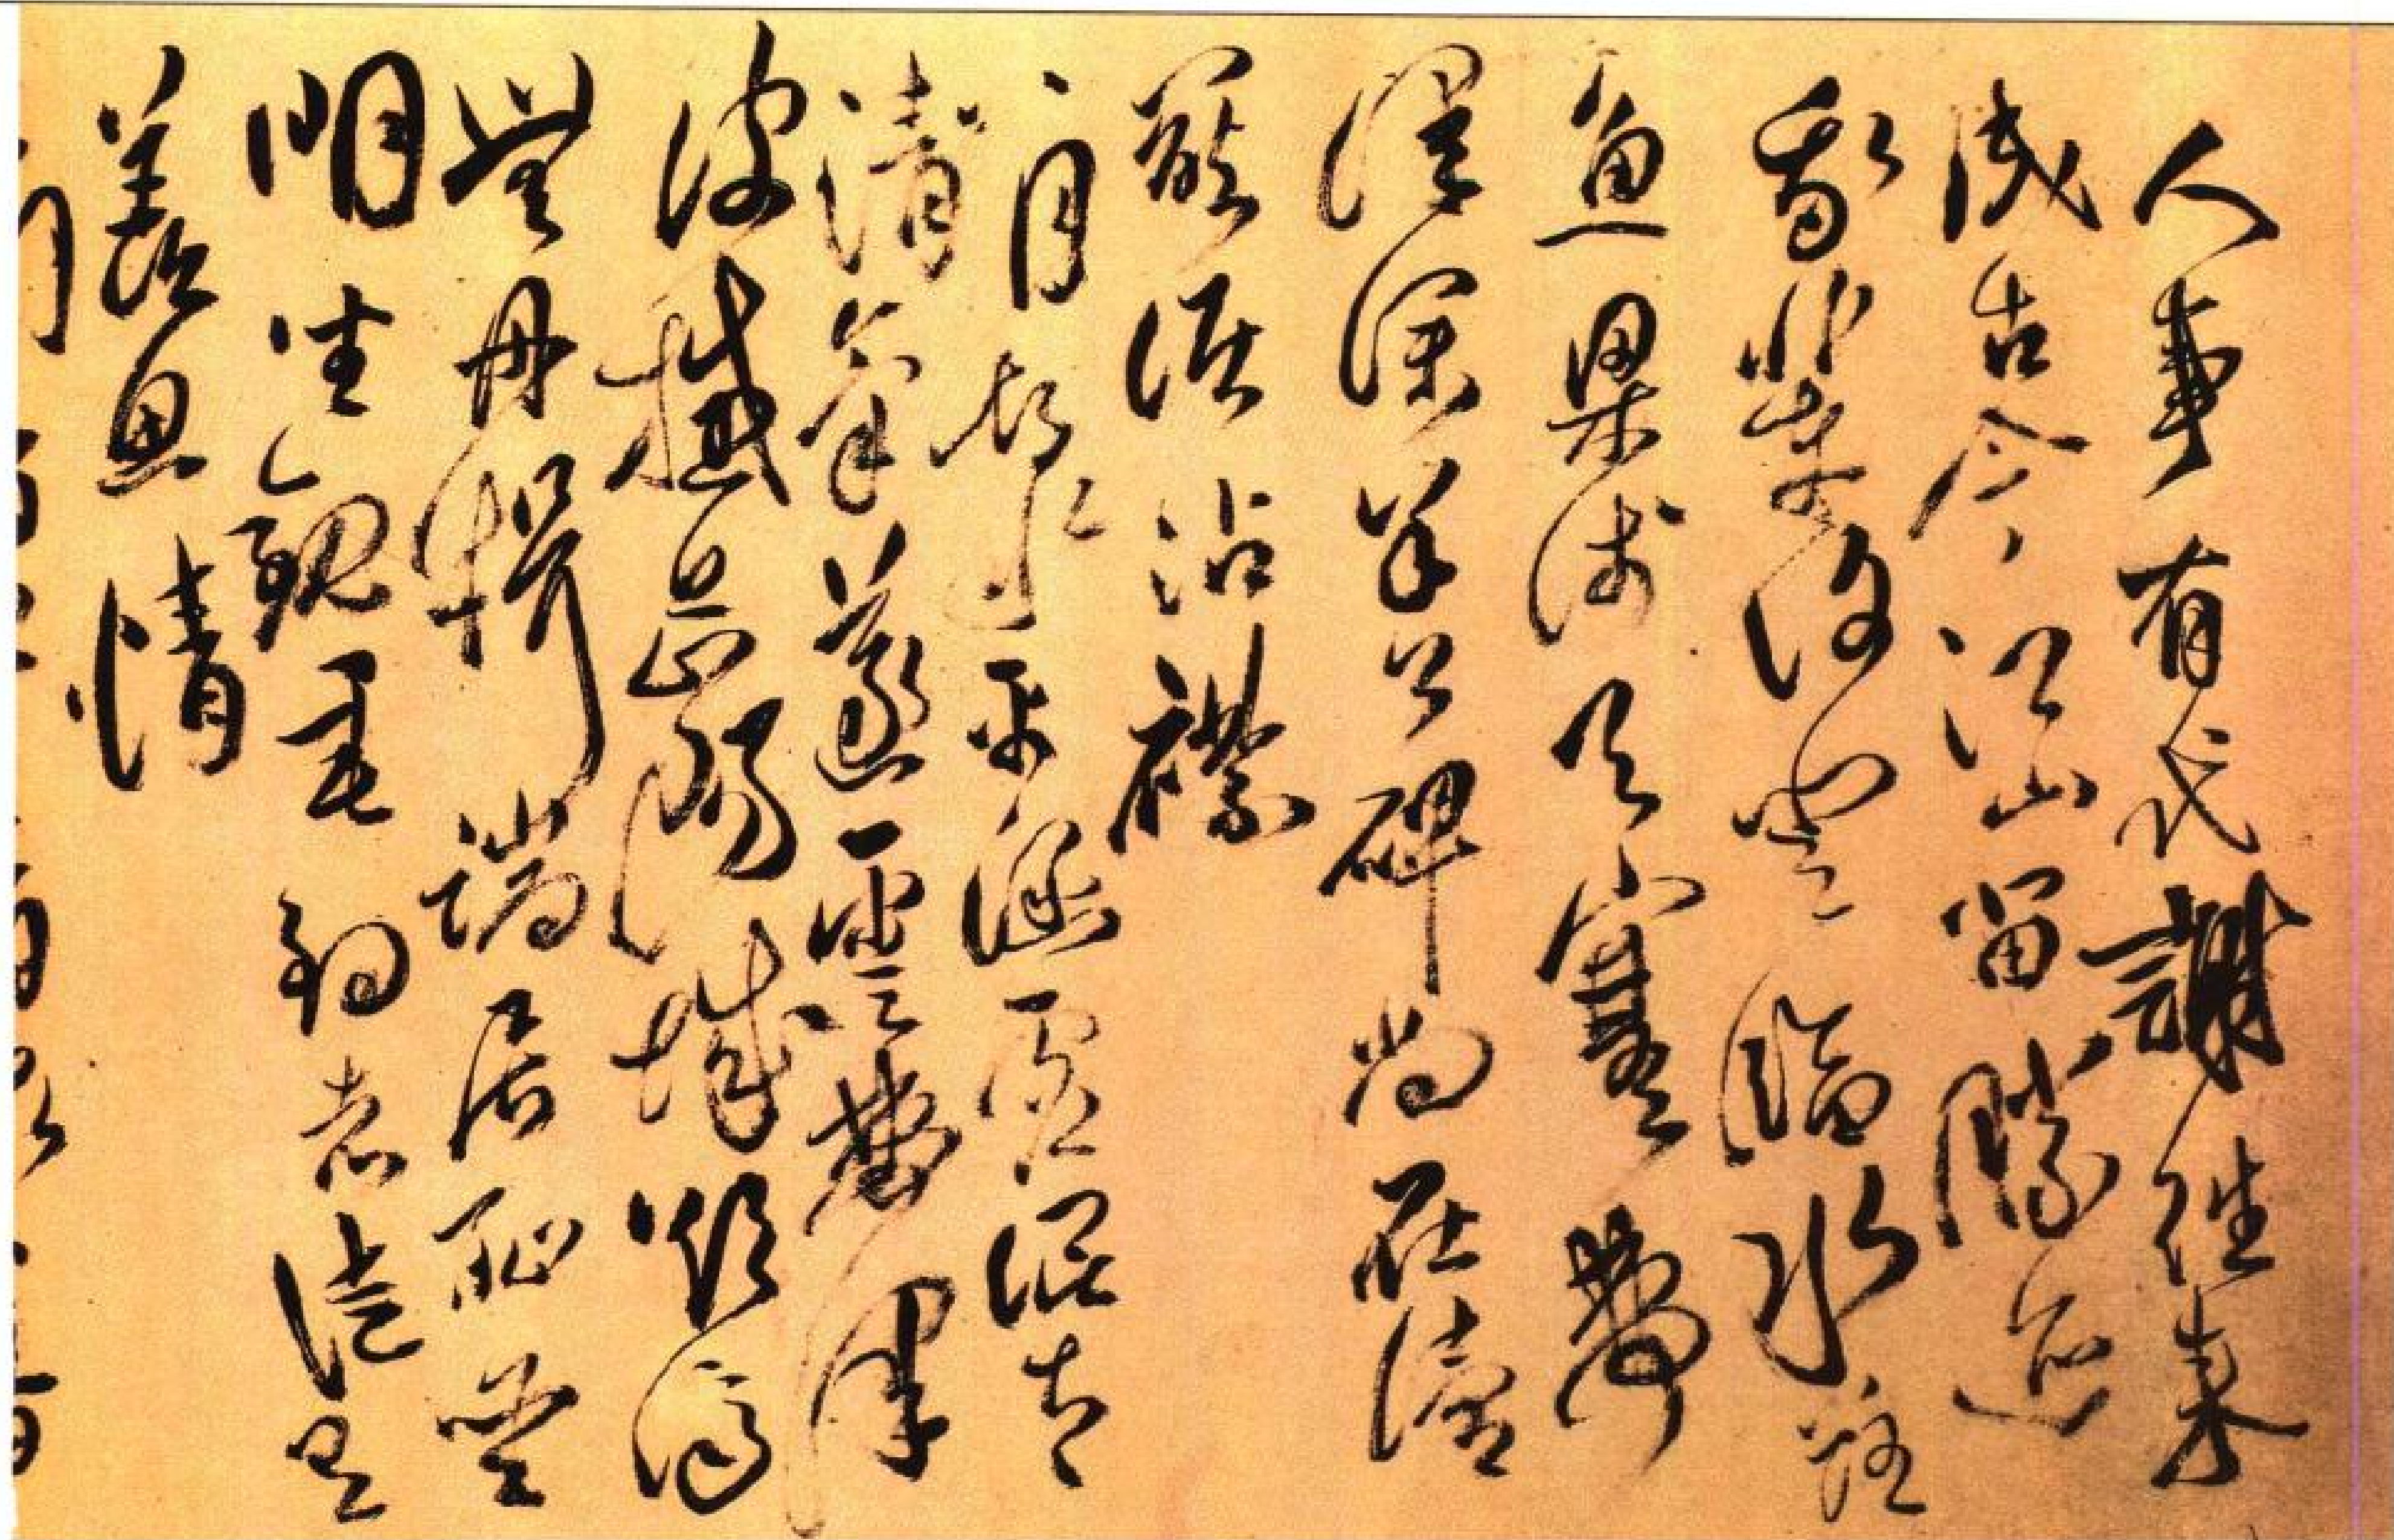 人事有代謝往来
成古今江山留勝迹
我輩復登臨水落
魚梁淺天寒夢
澤深羊公碑尚在讀
罷淚沾襟
八月湖水平涵虛混太
清氣蒸雲夢澤
波撼岳陽城欲濟
無舟楫端居恥聖
明坐觀垂釣者徒有
羨魚情